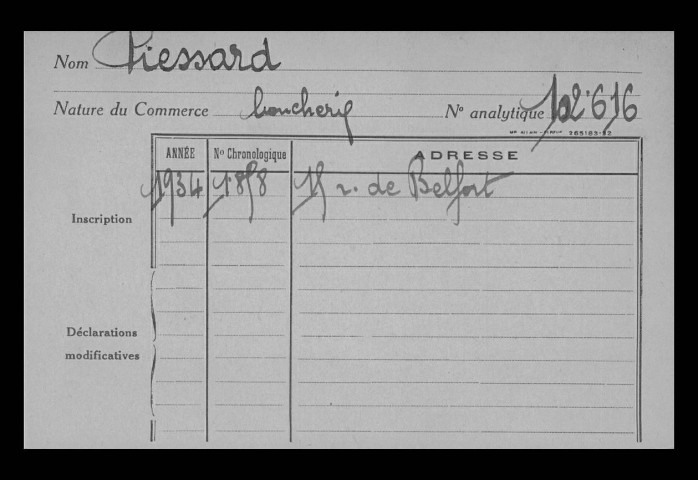 Nom Piessard
Nature du Commerce boucherie N° analytique 102.616
ANNÉE N° Chronologique ADRESSE
Inscription 1934 1.858 15 r. de Belfort
Déclarations
modificatives